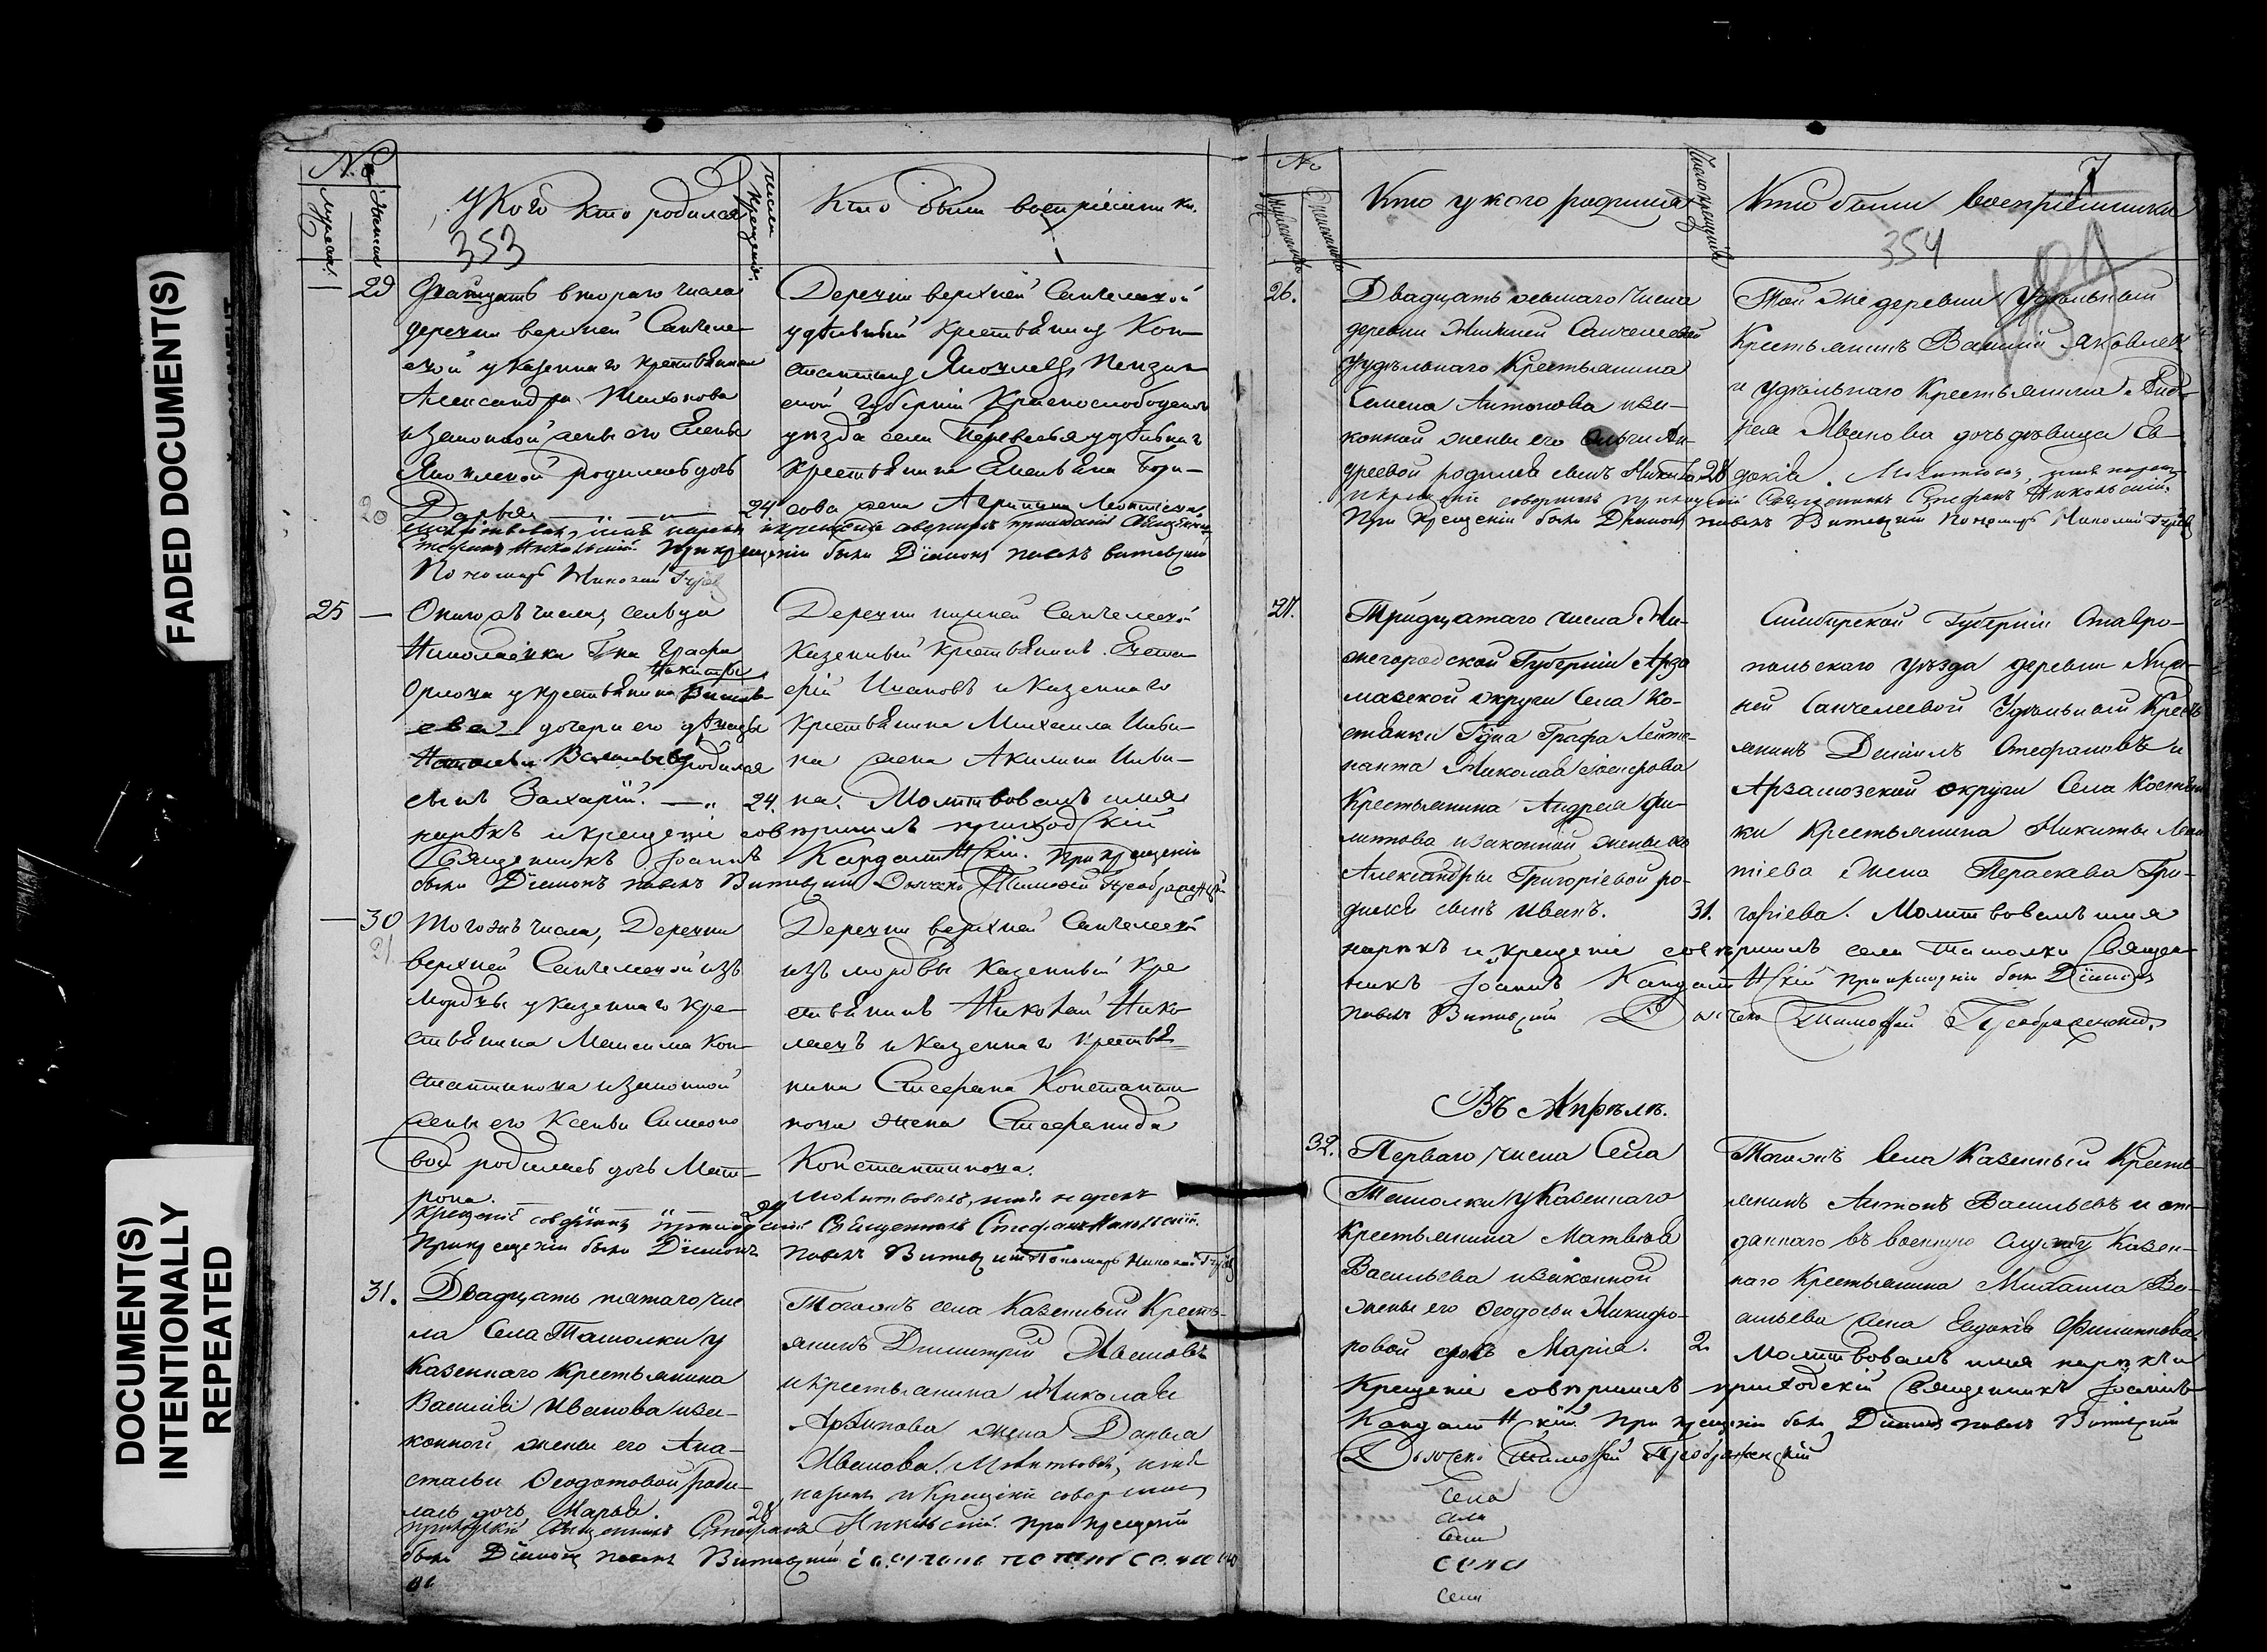 FADED DOCUMENT(S)
DOCUMENT(S)
INTENTIONALLY
REPEATED
№
мужеска
женска
у Кого кто родился
353
число крещенія
Кто были воспріемники.
29
Двадцать втораго числа
деревни верхней Санчеле-
евой у казеннаго крестьянина
Александра Тихонова
и законной жены его Елены
Яковлевой родилась дочь
20 Дарья 24.
Деревни верхней Санчелеевой
удѣльный крестьянинъ Кон-
стантинъ Яковлевъ, Пензен-
ской губерніи Краснослободскаго
уѣзда села Перевесья удѣльнаго
крестьянина Емельяна Бори-
сова жена Агрипина Леонтьева.
молитвовалъ, имя нарекъ и крещеніе совершилъ приходскій Священникъ
Стефанъ Никольскій. При крещеніи были Діаконъ Павелъ Витевскій
Пономарь Николай Гурьевъ
25 —
Онаго жъ числа, сельца
Николаевки Гна Графа
Орлова у крестьянина Никиты
дочери его дѣвицы
родился
сынъ Захарій. 24.
Деревни нижней Санчелеевой
Казенный Крестьянинъ Евста-
фій Ивановъ и Казеннаго
крестьянина Михаила Иви-
на жена Акилина Иви-
на. Молитвовалъ имя
нарѣкъ и крещеніе совершилъ приходскій
Священникъ Іоаннъ Кандалинскій. При крещеніи
были Діаконъ Павелъ Витевскій Дьячекъ Тимоѳей Преображенскій
— 30
21.
Того жъ числа, Деревни
верхней Санчелеевой изъ
Мордвы у казеннаго кре-
стьянина Максима Кон-
стантинова и законной
жены его Ксеньи Симоно-
вой родилась дочь Мат-
рона. 24
Деревни верхней Санчелеевой
изъ мордвы казенный кре
стьянинъ Николай Нико
лаевъ и казеннаго крестья
нина Стефана Константи
нова жена Стефанида
Константинова.
молитвовалъ, имя нарекъ
крещеніе совершилъ приходскій Священникъ Стефанъ Никольскій.
При крещеніи были Діаконъ Павелъ Витевскій Пономарь Николай Гурьевъ
31.
Двадцать пятаго чис
ла Села Ташолки у
Казеннаго Крестьянина
Василія Иванова и за-
конной жены его Ана-
стасьи Ѳеодотовой роди-
лась дочь Марья. 28
Тогожъ села Казенный Кресть-
янинъ Димитрій Ивановъ
и крестьянина Николая
Архипова жена Дарья
Иванова. Молитвовалъ, имя
нарекъ и Крещеніе совершилъ
приходскій Священникъ Стефанъ Никольскій. При крещеніи
были Діаконъ Павелъ Витевскій
№
мужескихъ
женскихъ
Кто у кого родился
Число крещенія
Кто были воспріемники
7
354
26.
Двадцать осьмаго числа
деревни Нижней Санчелеевой
у удѣльнаго Крестьянина
Семена Антонова и за-
конной жены его Ольги Ан-
дреевой родился сынъ Никита 28
Той же деревни Удѣльный
Крестьянинъ Василій Яковлевъ
и удѣльнаго Крестьянина Анд-
рея Иванова дочь дѣвица Ев-
докія. Молитвовалъ, имя нарекъ
и крещеніе совершилъ приходскій Священникъ Стефанъ Никольскій.
При крещеніи были Діаконъ Павелъ Витевскій Пономарь Николай Гурьевъ
27.
Тридцатаго числа Ни-
жегородской Губерніи Арза
маской округи Села Ко-
стянки Гдна Графа Лейте-
нанта Николая
Крестьянина Андрея Фи-
липова и законной жены его
Александры Григоріевой ро-
дился сынъ Иванъ. 31.
Симбирской Губерніи Ставро-
польскаго уѣзда деревни Ниж-
ней Санчелеевой Удѣльный Кресть
янинъ Даніилъ Стефановъ и
Арзамазской округи Села Костян
ки Крестьянина Никиты Леон
тіева жена Параскева Гри-
горіева. Молитвовалъ имя
нарекъ и крещеніе совершилъ села Ташолки Священ-
никъ Іоаннъ Кандалинскій При крещеніи были Діаконъ
Павелъ Витевскій Дьячекъ Тимоѳей Преображенскій.
Въ Апрѣлѣ.
32.
Перваго числа Села
Ташолки у Казеннаго
Крестьянина Матвѣя
Васильева и законной
жены его Ѳеодосьи Никифо-
ровой дочь Марія. 2.
Тогожъ Села Казенный Кресть-
янинъ Антонъ Васильевъ и от-
даннаго въ военную службу Казен-
наго Крестьянина Михаила Ва-
сильева жена Евдокія Филиппова.
Молитвовалъ имя нарекъ и
Крещеніе совершилъ приходскій Священникъ Іоаннъ
Кандалинскій. При крещеніи были Діаконъ Павелъ Витевскій
Дьячекъ Тимоѳей Преображенскій
Села
села
Села
села
Села